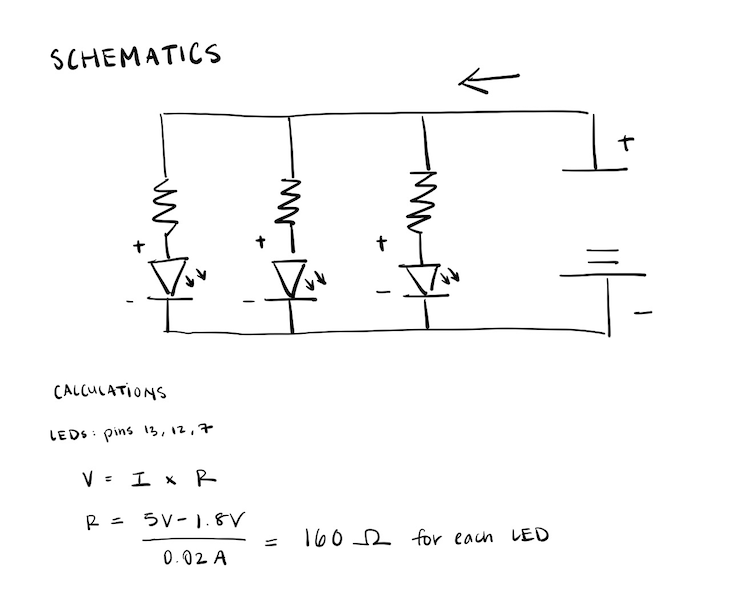 SCHEMATICS
+
+ + +
- - -
-
CALCULATIONS
LEDs: pins 13, 12, 7
V = I x R
R = 5V-1.8V / 0.02A = 160 Ω for each LED